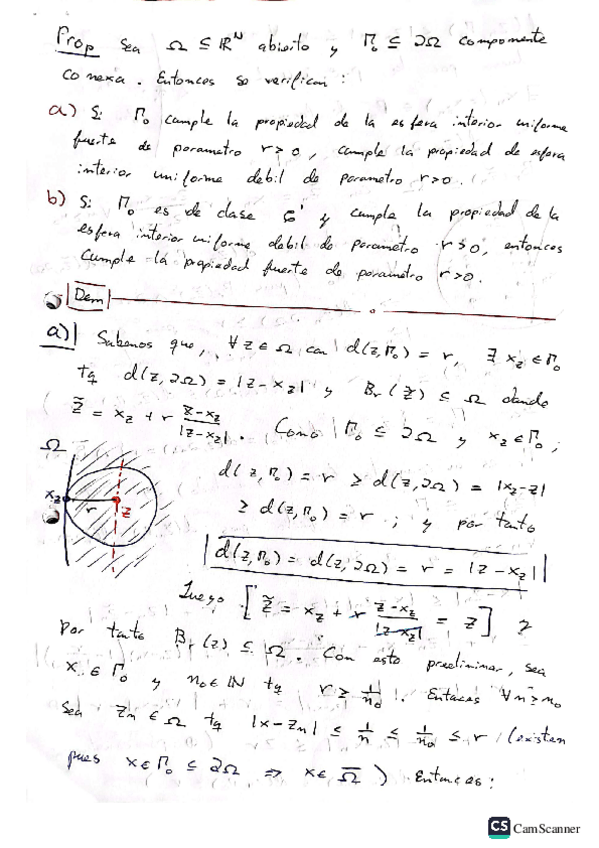 Prop Sea Ω ⊆ ℝᴺ abierto y Γ₀ ⊆ ∂Ω componente
conexa. Entonces se verifican:
a) Si Γ₀ cumple la propiedad de la esfera interior uniforme
fuerte de parametro r>0, cumple la propiedad de esfera
interior uniforme debil de parametro r>0.
b) Si Γ₀ es de clase C¹ y cumple la propiedad de la
esfera interior uniforme debil de parametro r>0, entonces
cumple la propiedad fuerte de parametro r>0.
Dem
a) Sabemos que, ∀z∈Ω con d(z,Γ₀) = r, ∃ x_z ∈ Γ₀
tq d(z,∂Ω) = |z-x_z| y B_r(z̃) ⊆ Ω donde
z̃ = x_z + r (z-x_z)/|z-x_z|. Como Γ₀ ⊆ ∂Ω y x_z ∈ Γ₀,
Ω
x_z r z
d(z,Γ₀) = r ≥ d(z,∂Ω) = |x_z-z|
≥ d(z,Γ₀) = r ; y por tanto
d(z,Γ₀) = d(z,∂Ω) = r = |z-x_z|
Luego [z̃ = x_z + r (z-x_z)/|z-x_z| = z] y
por tanto B_r(z) ⊆ Ω. Con esto preeliminar, sea
x ∈ Γ₀ y n₀ ∈ ℕ tq r ≥ 1/n₀. Entonces ∀n≥n₀
sea z_n ∈ Ω tq |x-z_n| ≤ 1/n ≤ 1/n₀ ≤ r (existen
pues x∈Γ₀ ⊆ ∂Ω ⇒ x∈ Ω̅) Entonces:
CS CamScanner